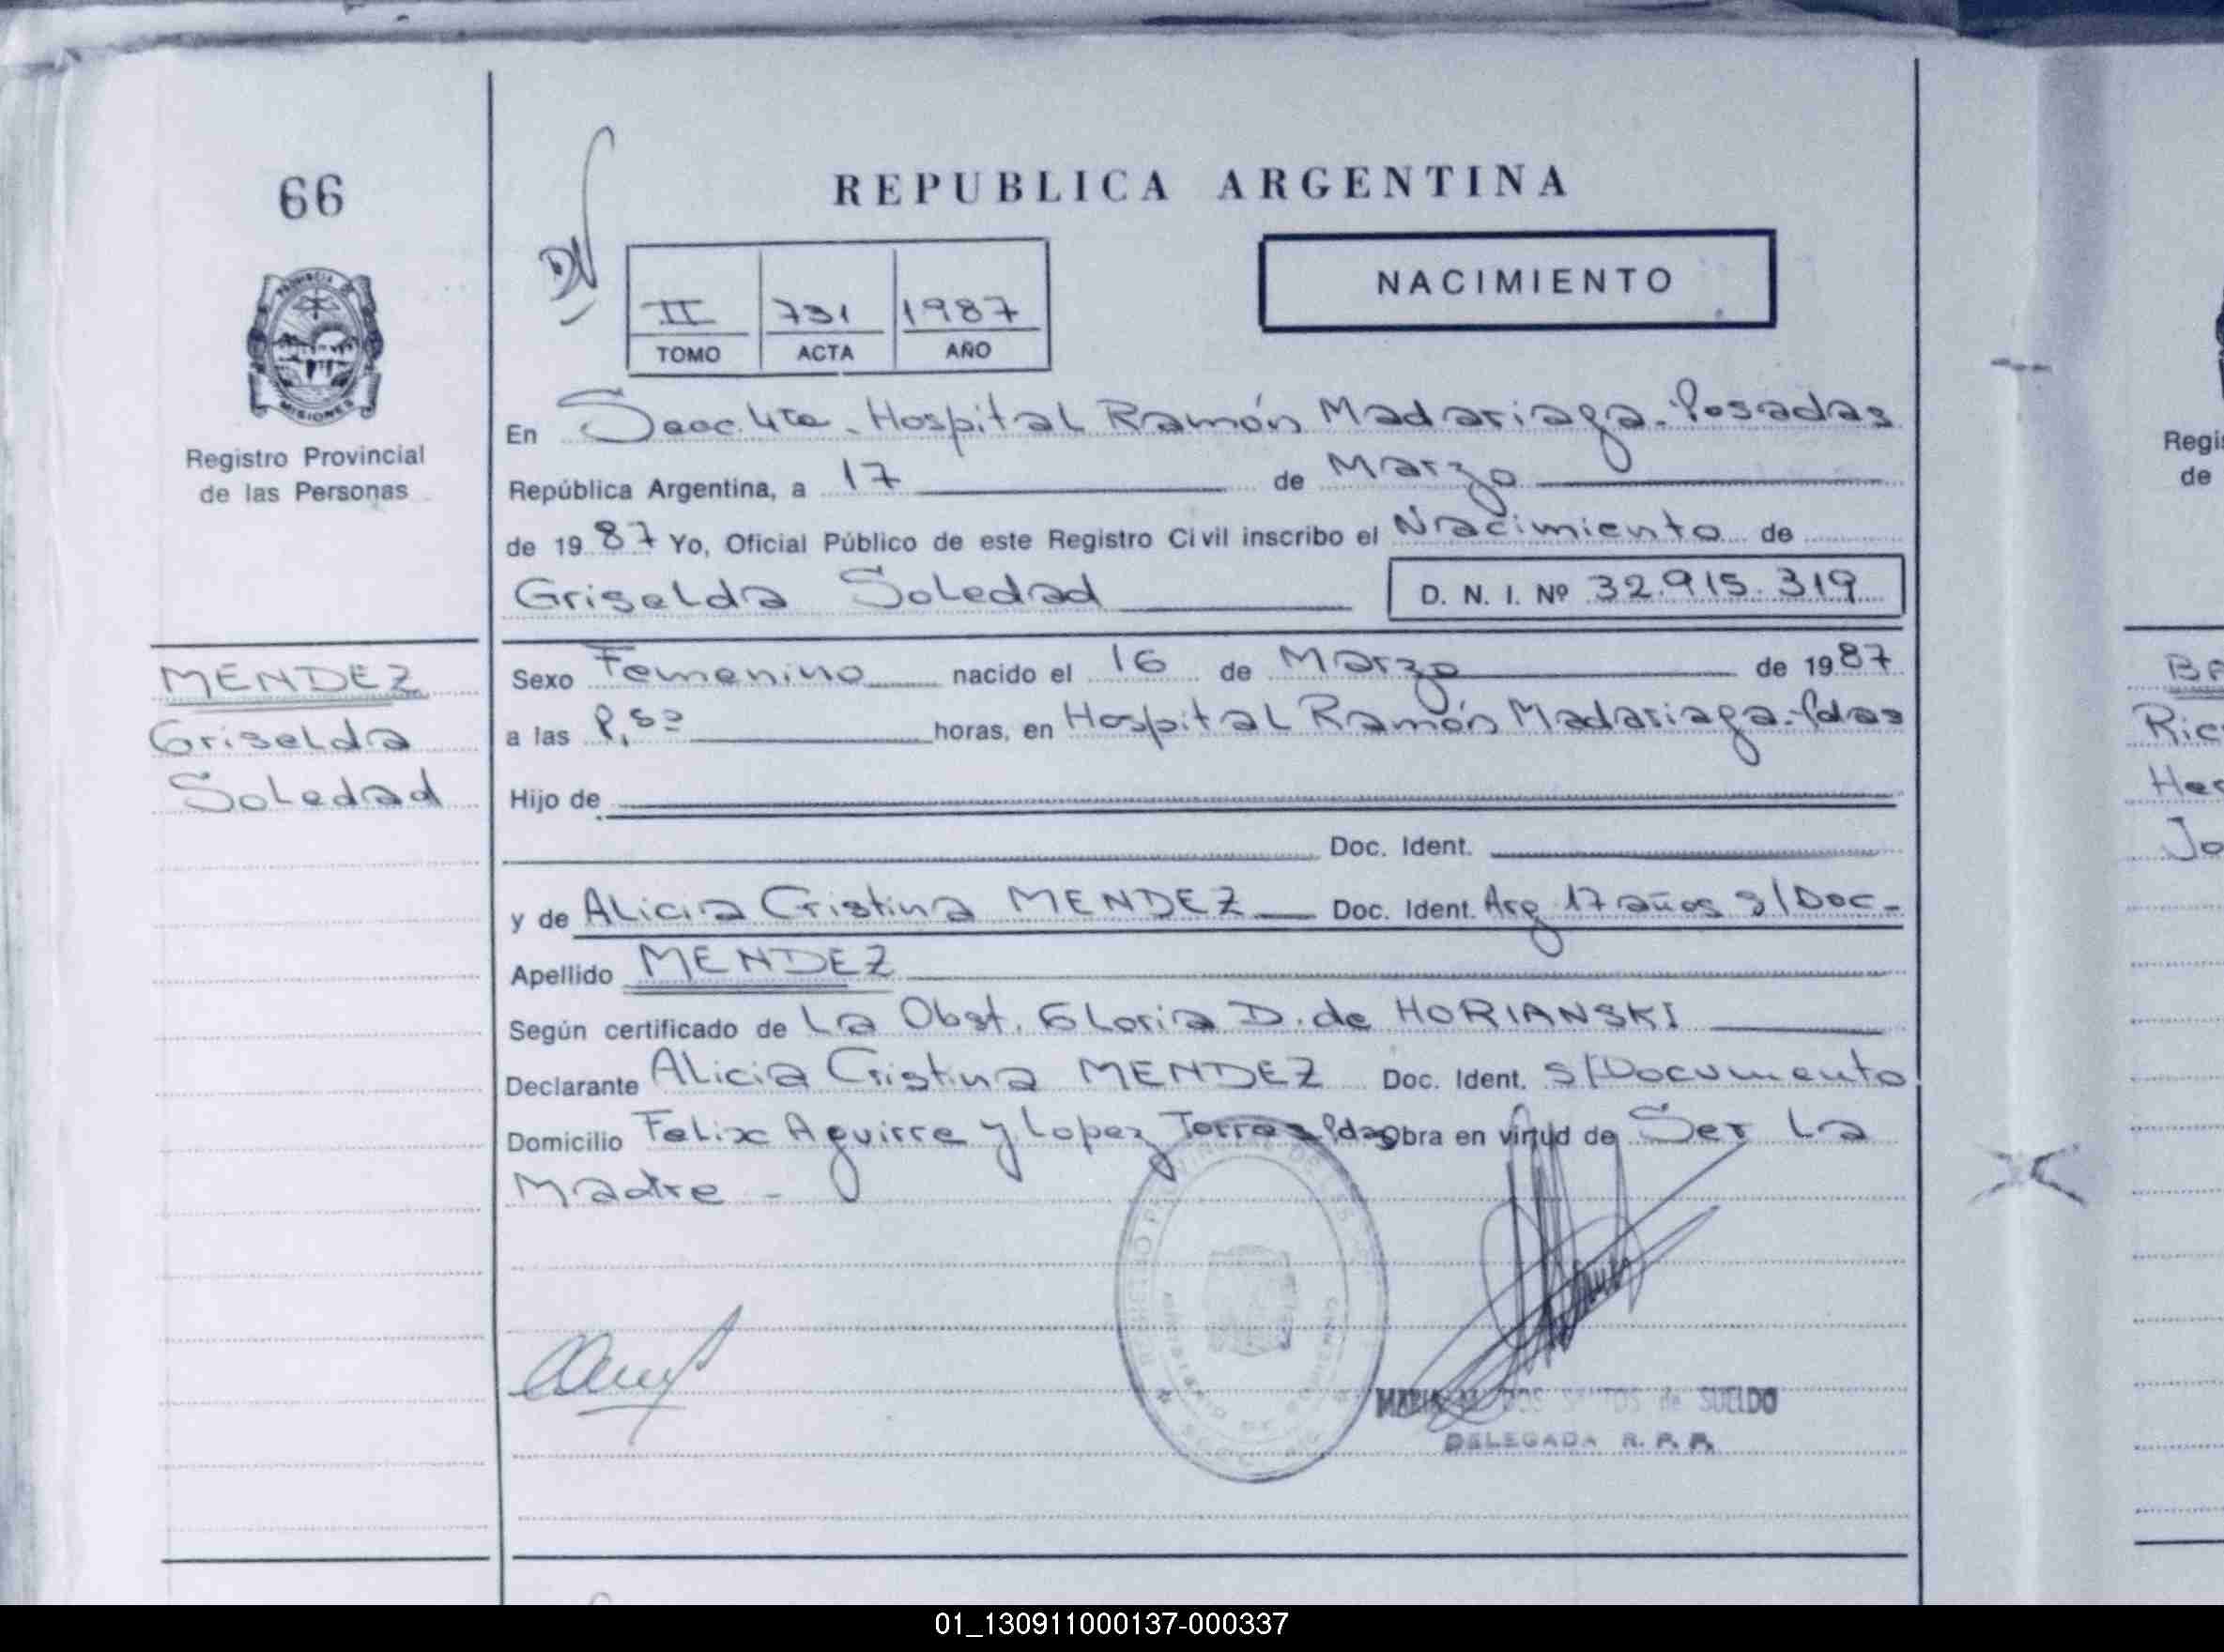 66
REPUBLICA ARGENTINA
NACIMIENTO
II 731 1987
TOMO ACTA AÑO
PROVINCIA DE
MISIONES
Registro Provincial
de las Personas
En Secc. 4ta. Hospital Ramón Madariaga. Posadas
República Argentina, a 17 de Marzo
de 1987 Yo, Oficial Público de este Registro Civil inscribo el Nacimiento de
Griselda Soledad D. N. I. Nº 32.915.319
MENDEZ
Griselda
Soledad
Sexo Femenino nacido el 16 de Marzo de 1987
a las 8,50 horas, en Hospital Ramón Madariaga. Pdas
Hijo de
Doc. Ident.
y de Alicia Cristina MENDEZ Doc. Ident. Arg 17 años s/Doc-
Apellido MENDEZ
Según certificado de La Obst. Gloria D. de HORIANSKI
Declarante Alicia Cristina MENDEZ Doc. Ident. s/Documento
Domicilio Felix Aguirre y Lopez Torres Pdas Obra en virtud de Ser La
Madre -
REGISTRO PROVINCIAL DE LAS
MINISTERIO DE GOBIERNO
DOS SANTOS de SUELDO
DELEGADA R. P. P.
Regi
de
BA
Ric
Her
Jo
01_130911000137-000337